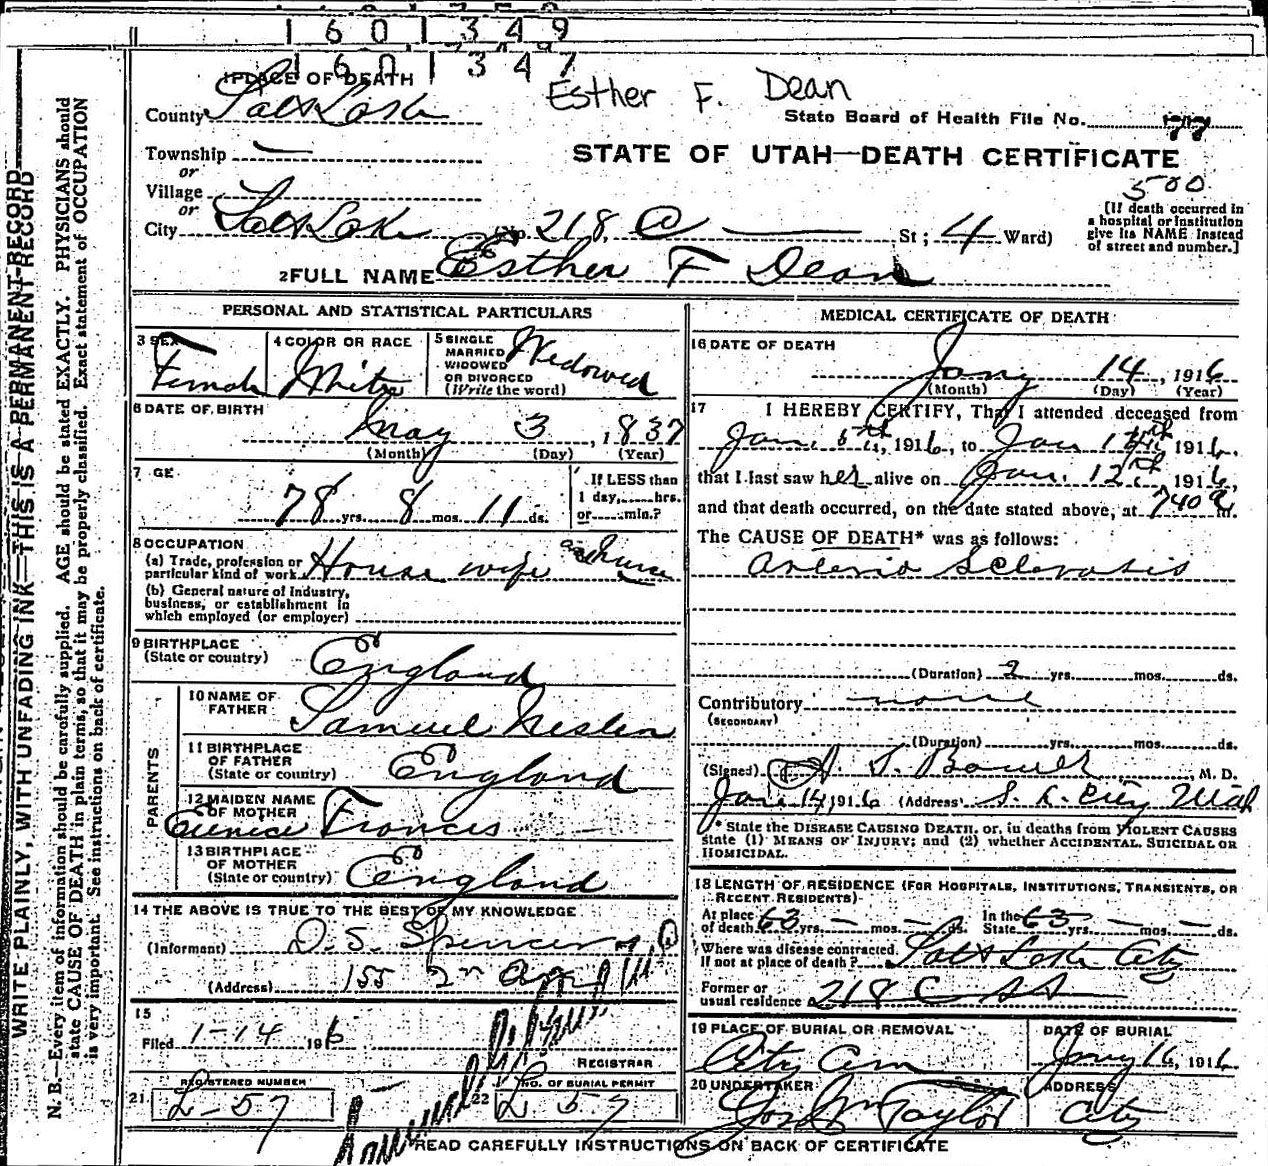 1601349
1601347
1 PLACE OF DEATH
Esther F. Dean
County Salt Lake
State Board of Health File No. 77
Township
or
STATE OF UTAH—DEATH CERTIFICATE
Village
or
500
City Salt Lake (No. 218 C St; 4 Ward)
[If death occurred in
a hospital or institution
give its NAME instead
of street and number.]
2 FULL NAME Esther F Dean
PERSONAL AND STATISTICAL PARTICULARS
3 SEX Female
4 COLOR OR RACE White
5 SINGLE
MARRIED
WIDOWED
OR DIVORCED
(Write the word)
Widowed
6 DATE OF BIRTH
May 3, 1837
(Month) (Day) (Year)
7 AGE
78 yrs. 8 mos. 11 ds.
If LESS than
1 day, hrs.
or min.?
8 OCCUPATION
(a) Trade, profession or
particular kind of work House wife and nurse
(b) General nature of industry,
business, or establishment in
which employed (or employer)
9 BIRTHPLACE
(State or country) England
PARENTS
10 NAME OF
FATHER Samuel Neslen
11 BIRTHPLACE
OF FATHER
(State or country) England
12 MAIDEN NAME
OF MOTHER
Eunice Francis
13 BIRTHPLACE
OF MOTHER
(State or country) England
14 THE ABOVE IS TRUE TO THE BEST OF MY KNOWLEDGE
(Informant) D. S. Spencer
(Address) 155 2nd Ave
15
Filed 1-14 1916
REGISTRAR
REGISTERED NUMBER
21 L-57
NO. OF BURIAL PERMIT
22 L 57
MEDICAL CERTIFICATE OF DEATH
16 DATE OF DEATH
Jany 14, 1916
(Month) (Day) (Year)
17 I HEREBY CERTIFY, That I attended deceased from
Jan. 6th, 1916, to Jan 14th 1916.
that I last saw her alive on Jan. 12th 1916,
and that death occurred, on the date stated above, at 740 a m.
The CAUSE OF DEATH* was as follows:
Arterio Sclerosis
(Duration) 2 yrs. mos. ds.
Contributory none
(SECONDARY)
(Duration) yrs. mos. ds.
(Signed) M. D.
Jan. 14, 1916 (Address) S. L. City Utah
* State the DISEASE CAUSING DEATH, or, in deaths from VIOLENT CAUSES
state (1) MEANS OF INJURY; and (2) whether ACCIDENTAL, SUICIDAL OR
HOMICIDAL.
18 LENGTH OF RESIDENCE (FOR HOSPITALS, INSTITUTIONS, TRANSIENTS, OR
RECENT RESIDENTS)
At place
of death 63 yrs. — mos. — ds.
In the
State 63 yrs. — mos. — ds.
Where was disease contracted
If not at place of death? Salt Lake City
Former or
usual residence 218 C St
19 PLACE OF BURIAL OR REMOVAL
City Cem
DATE OF BURIAL
Jany 16, 1916
20 UNDERTAKER
Jos Wm Taylor
ADDRESS
City
READ CAREFULLY INSTRUCTIONS ON BACK OF CERTIFICATE
WRITE PLAINLY, WITH UNFADING INK—THIS IS A PERMANENT RECORD
N. B.—Every item of information should be carefully supplied. AGE should be stated EXACTLY. PHYSICIANS should
state CAUSE OF DEATH in plain terms, so that it may be properly classified. Exact statement of OCCUPATION
is very important. See instructions on back of certificate.